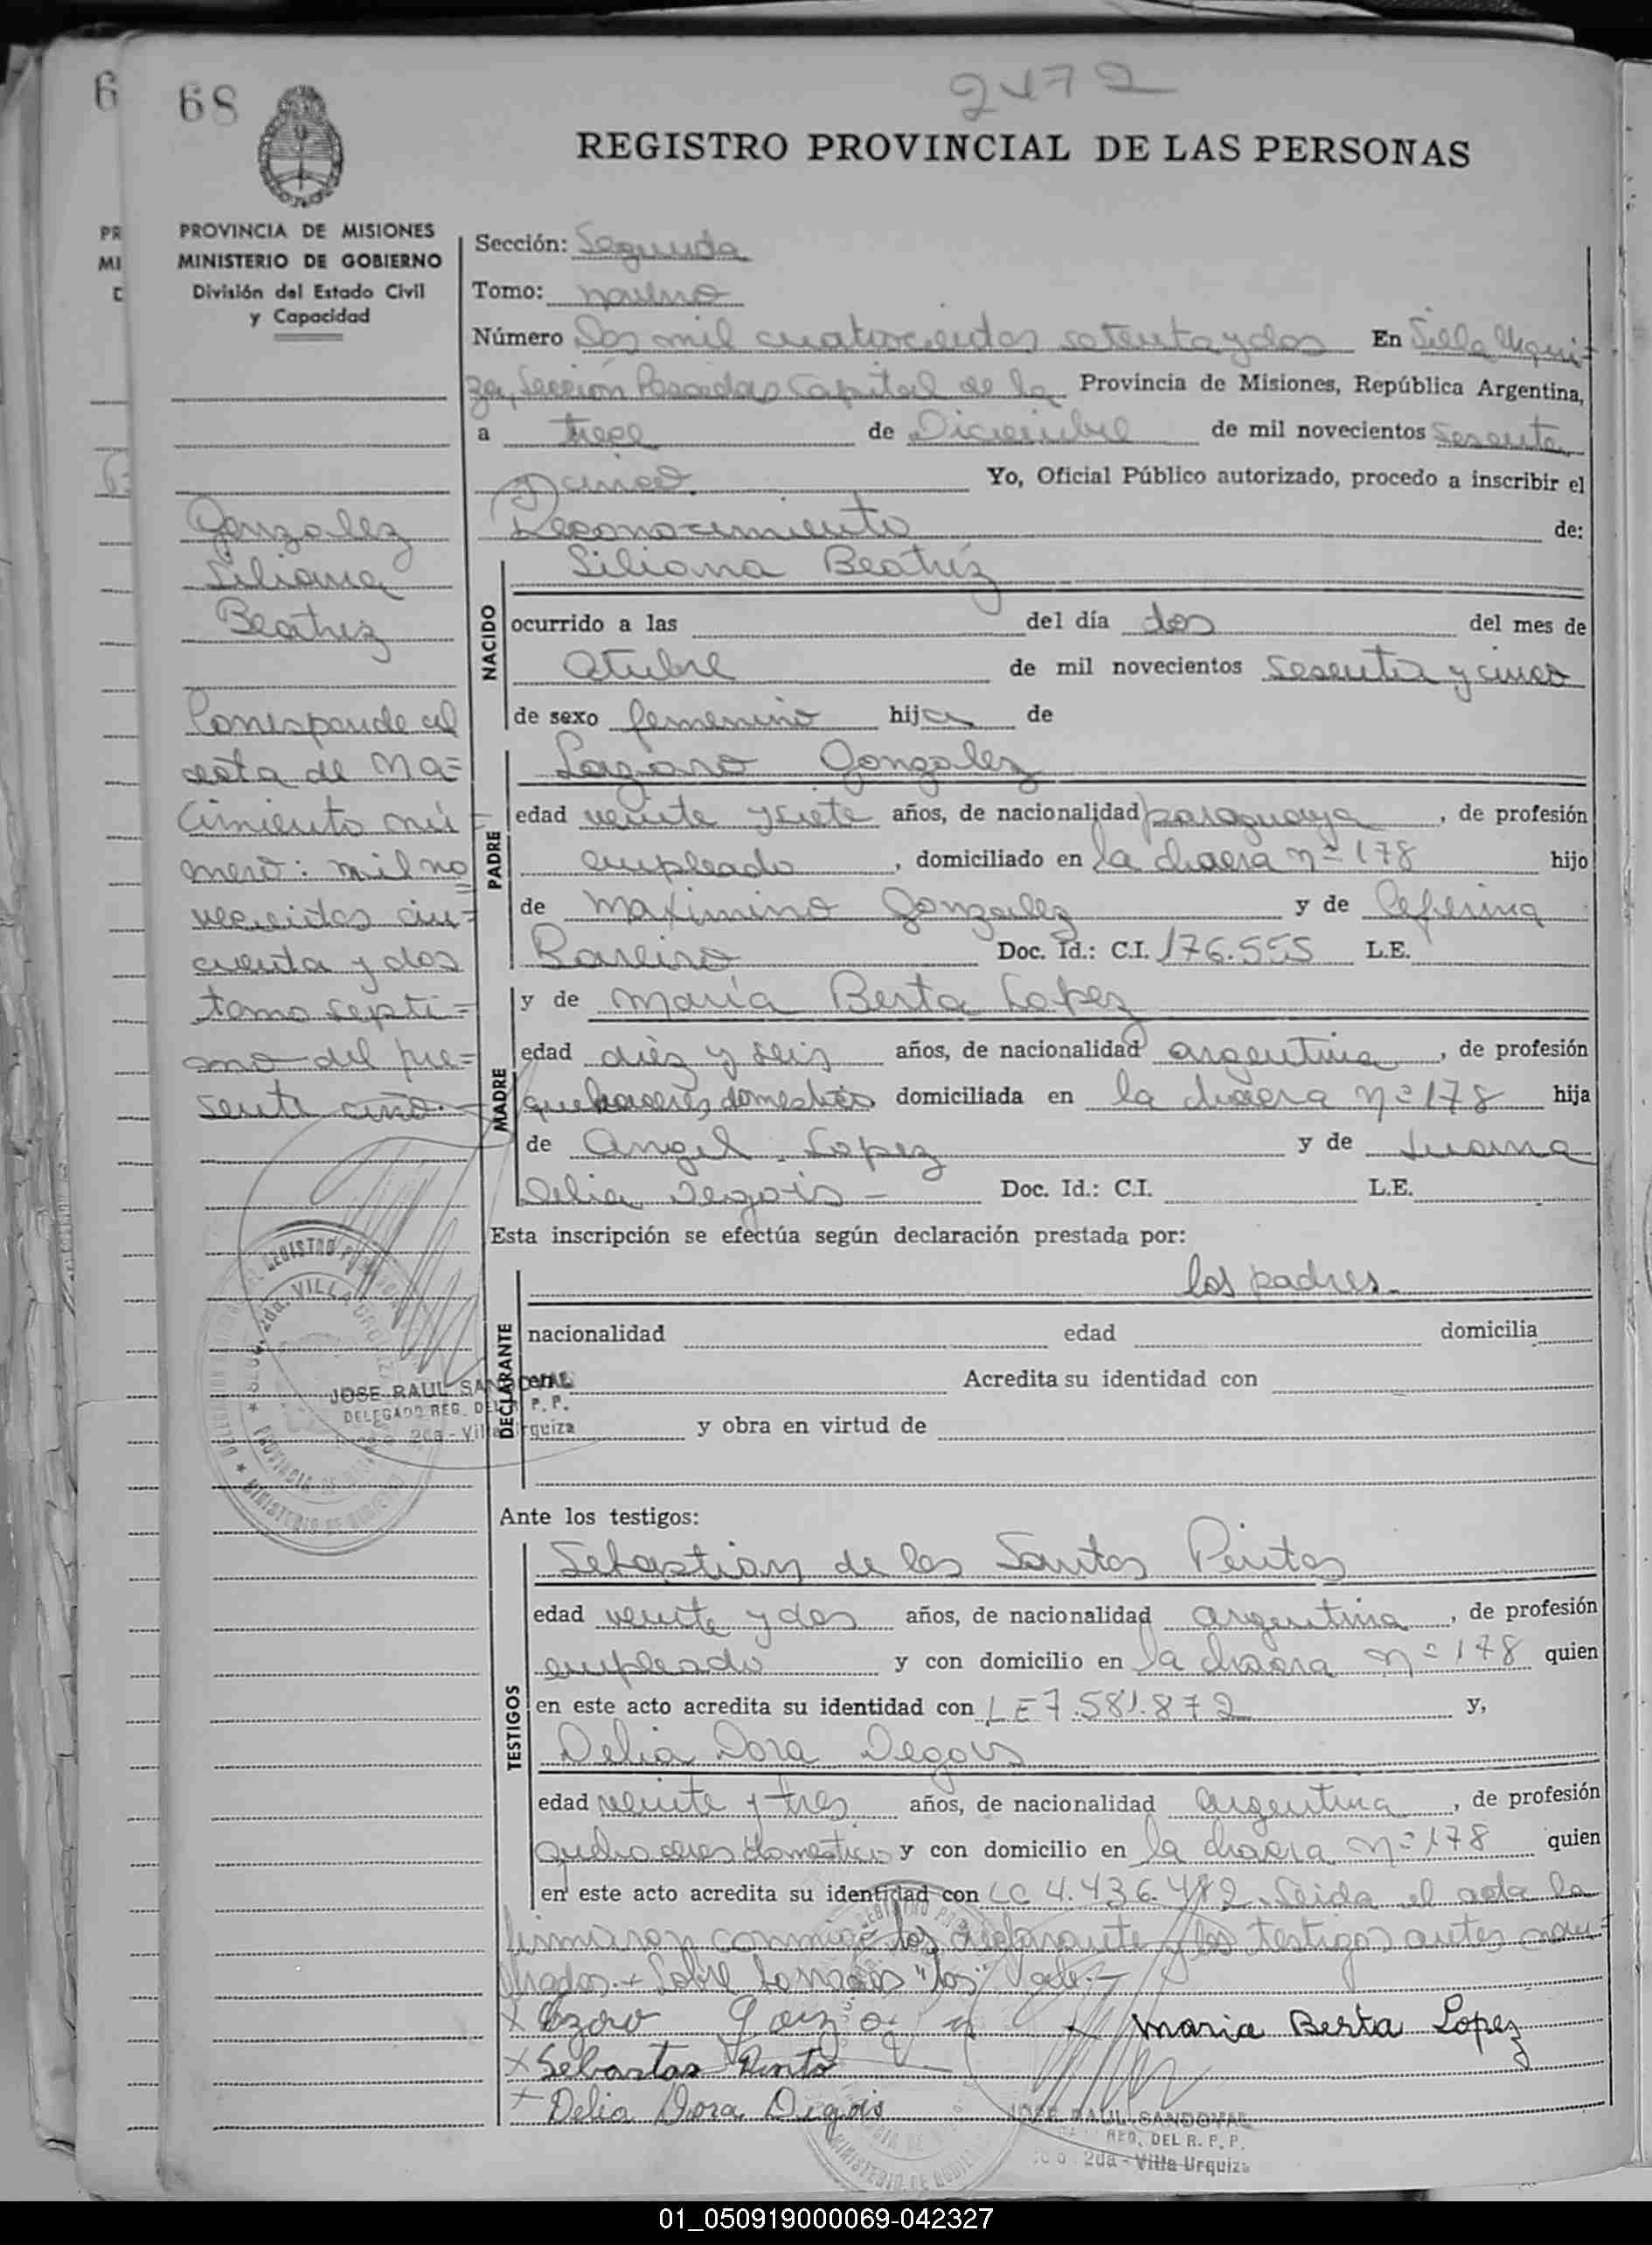 68
2472
REGISTRO PROVINCIAL DE LAS PERSONAS
PROVINCIA DE MISIONES
MINISTERIO DE GOBIERNO
División del Estado Civil
y Capacidad
Gonzalez
Liliana
Beatriz
Corresponde al
acta de Na=
cimiento nú
mero: mil no
vecientos cin=
cuenta y dos
tomo septi=
mo del pre=
sente año.-
Sección: Segunda
Tomo: noveno
Número Dos mil cuatrocientos setenta y dos En Villa Urqui=
za, Sección Posadas Capital de la Provincia de Misiones, República Argentina,
a trece de Diciembre de mil novecientos sesenta
y cinco Yo, Oficial Público autorizado, procedo a inscribir el
Reconocimiento de:
NACIDO
Liliana Beatríz
ocurrido a las del día dos del mes de
Otubre de mil novecientos sesenta y cinco
de sexo femenino hija de
PADRE
Lazaro Gonzalez
edad veinte y siete años, de nacionalidad paraguaya, de profesión
empleado, domiciliado en la chacra nº 178 hijo
de Maximino Gonzalez y de Ceferina
Bareiro Doc. Id.: C.I. 176.555 L.E.
MADRE
y de María Berta Lopez
edad diéz y seis años, de nacionalidad argentina, de profesión
quehaceres domesticos domiciliada en la chacra nº 178 hija
de Angel Lopez y de Juana
Delia Degois - Doc. Id.: C.I. L.E.
Esta inscripción se efectúa según declaración prestada por:
DECLARANTE
los padres.
nacionalidad edad domicilia
en Acredita su identidad con
y obra en virtud de
JOSE RAUL SANDOVAL
DELEGADO REG. DEL R. P. P.
2da - Villa Urquiza
Ante los testigos:
TESTIGOS
Sebastian de los Santos Pintos
edad veinte y dos años, de nacionalidad argentina, de profesión
empleado y con domicilio en la chacra nº 178 quien
en este acto acredita su identidad con LE 7.581.872 y,
Delia Dora Degois
edad veinte y tres años, de nacionalidad argentina, de profesión
quehaceres domestico y con domicilio en la chacra nº 178 quien
en este acto acredita su identidad con LC 4.436.482. Leida el acta la
firmaron conmigo los declarante y los testigos antes nom=
brados.- Sobre borrados "los" Vale.-
Maria Berta Lopez
Sebastas Pinto
Delia Dora Degois
JOSE RAUL SANDOVAL
REG. DEL R. P. P.
2da - Villa Urquiza
01_050919000069-042327